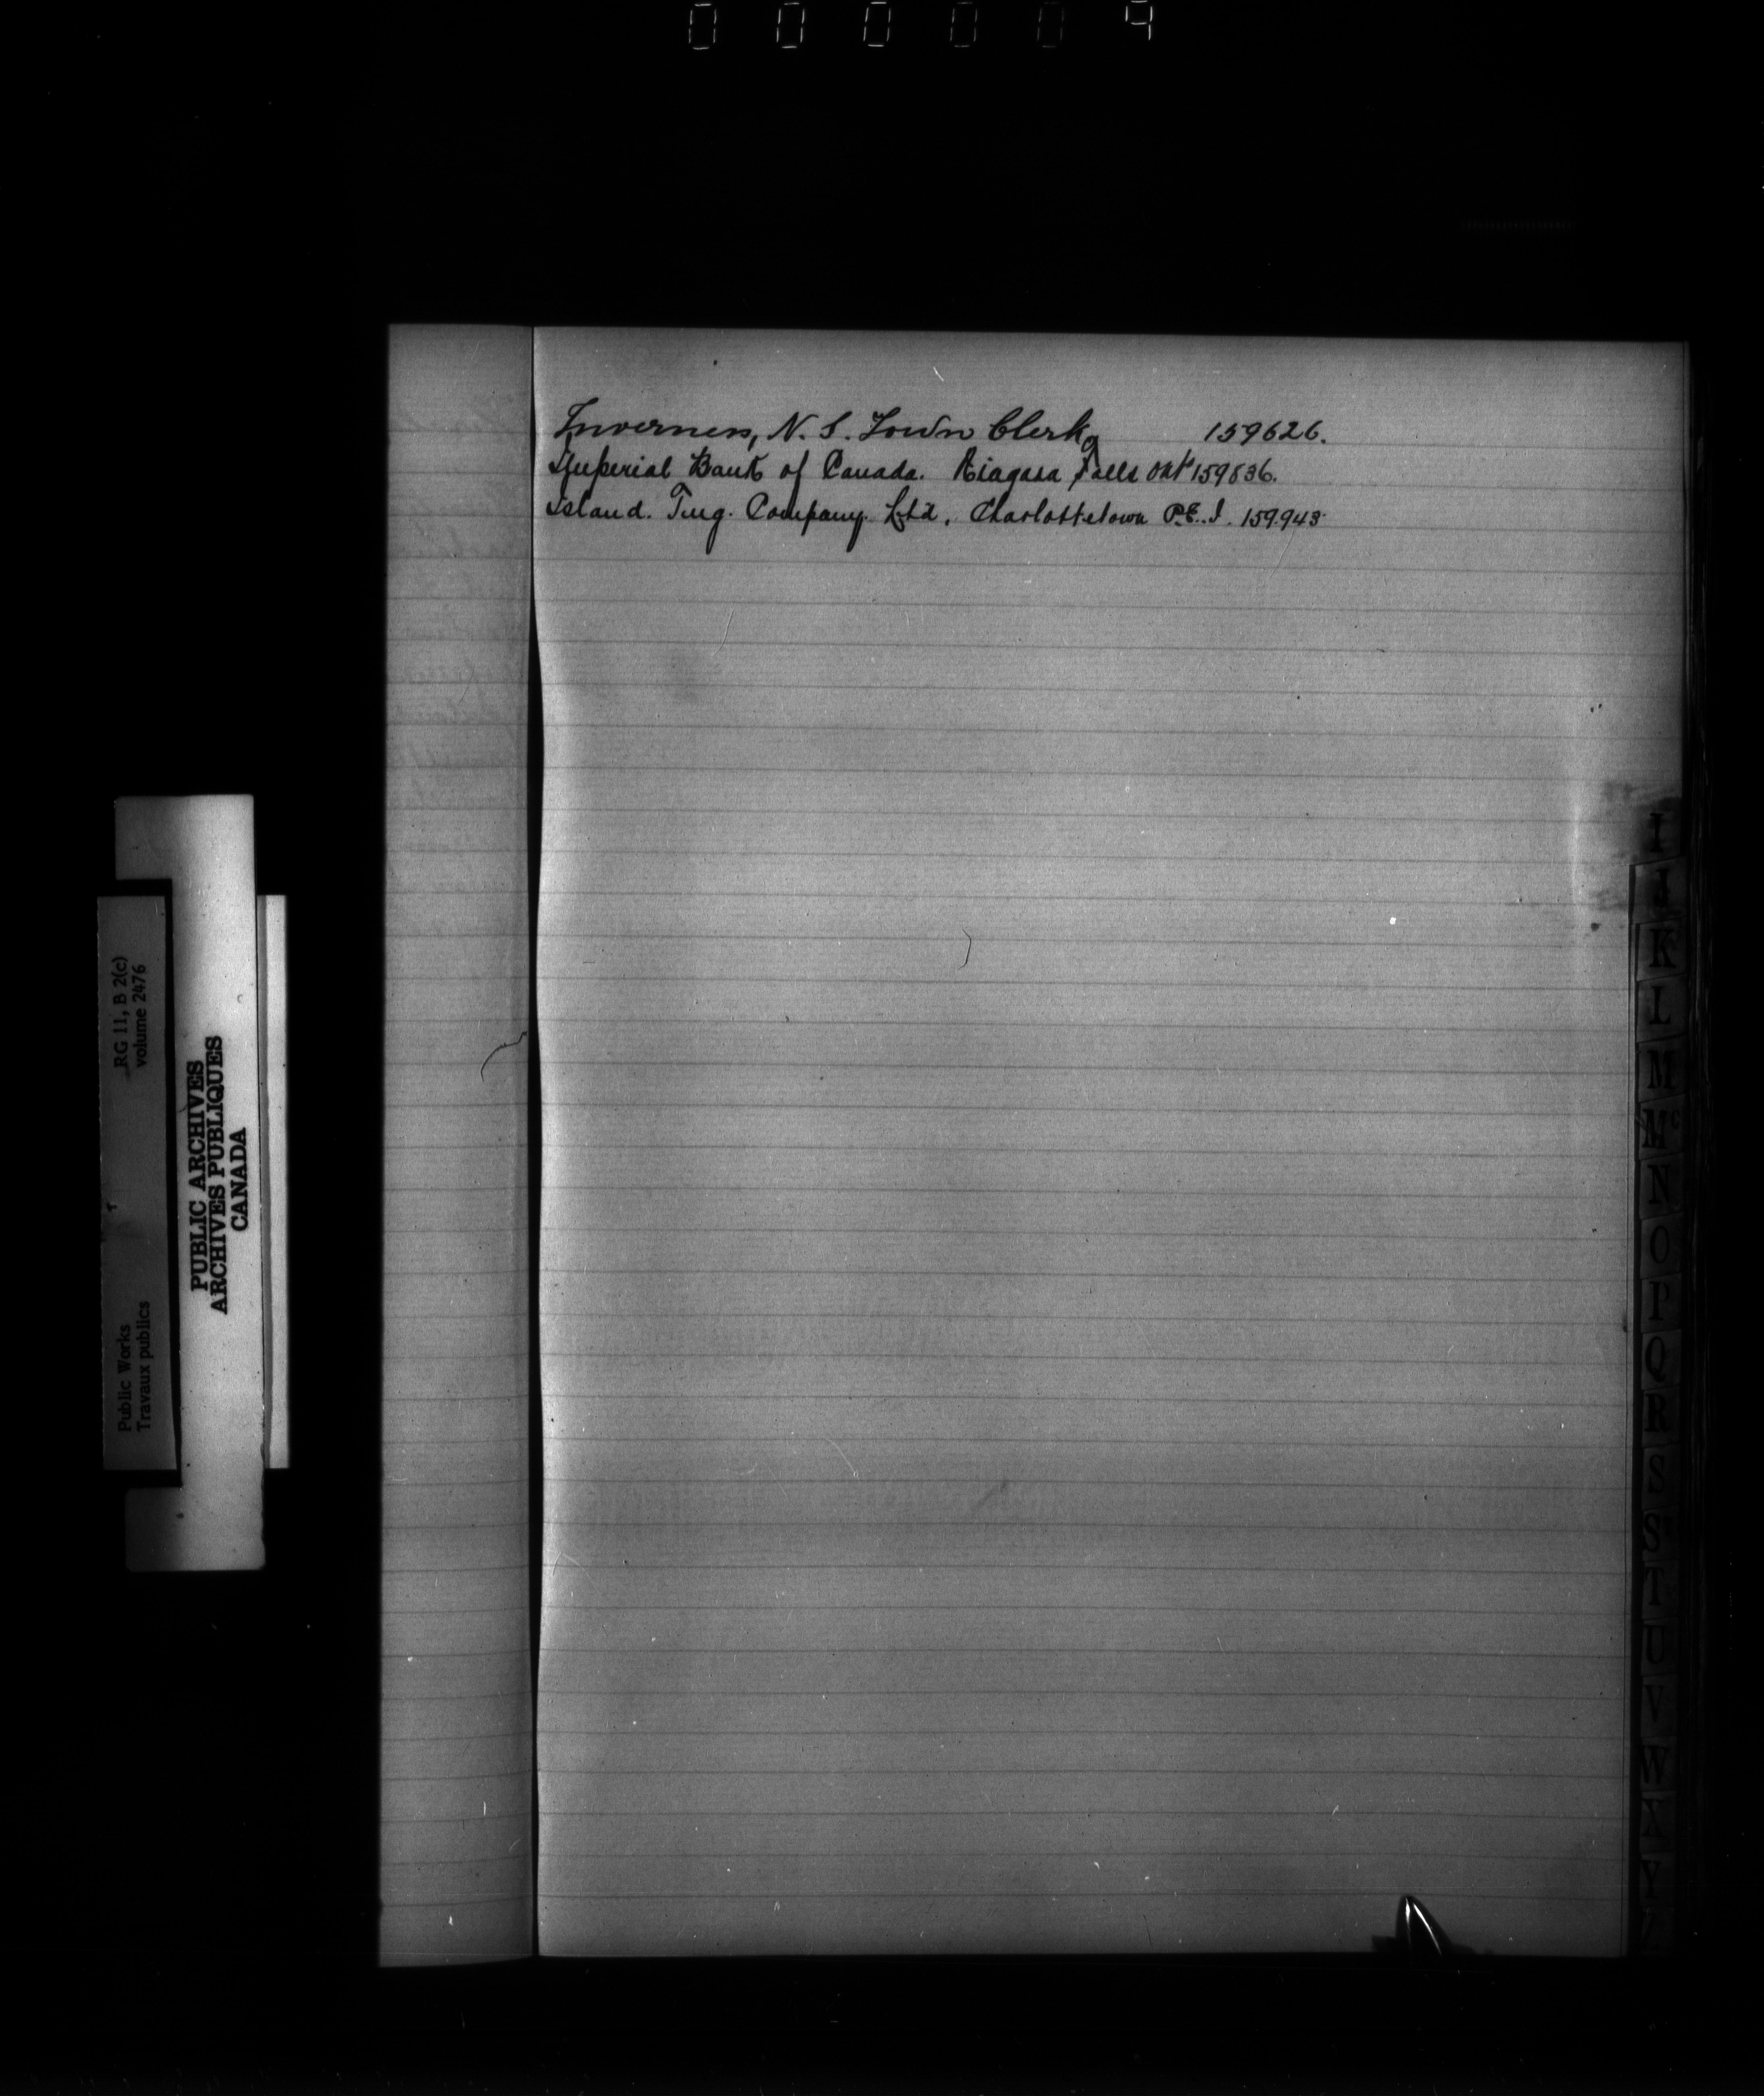 000009
Inverness, N.S. Town Clerk 159626.
Imperial Bank of Canada. Niagara Falls Ont 159836.
Island. Tug. Company. Ltd. Charlottetown P.E.I. 159.943
RG 11, B 2(c)
volume 2476
Public Works
Travaux publics
PUBLIC ARCHIVES
ARCHIVES PUBLIQUES
CANADA
I
J
K
L
M
Mc
N
O
P
Q
R
S
S
T
U
V
W
X
Y